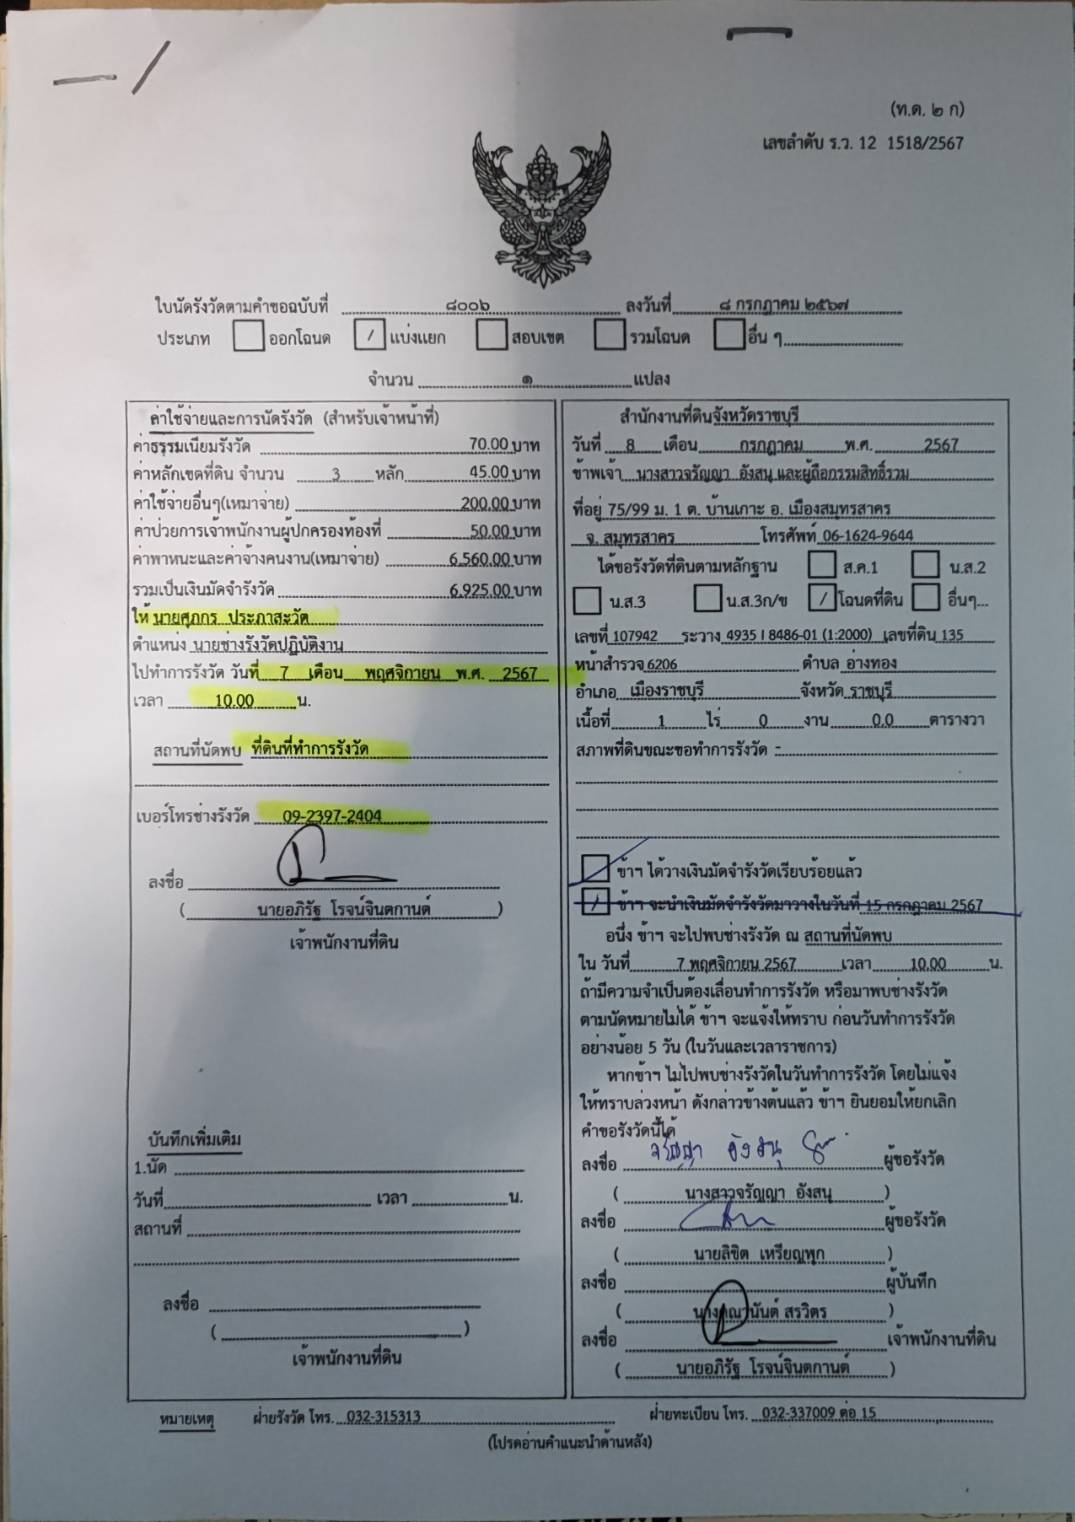 (ท.ด. ๒ ก)
เลขลำดับ ร.ว. 12 1518/2567
ใบนัดรังวัดตามคำขอฉบับที่ ๘๐๐๖ ลงวันที่ ๘ กรกฎาคม ๒๕๖๗
ประเภท ออกโฉนด / แบ่งแยก สอบเขต รวมโฉนด อื่น ๆ
จำนวน ๑ แปลง
ค่าใช้จ่ายและการนัดรังวัด (สำหรับเจ้าหน้าที่)
ค่าธรรมเนียมรังวัด 70.00 บาท
ค่าหลักเขตที่ดิน จำนวน 3 หลัก 45.00 บาท
ค่าใช้จ่ายอื่นๆ(เหมาจ่าย) 200.00 บาท
ค่าป่วยการเจ้าพนักงานผู้ปกครองท้องที่ 50.00 บาท
ค่าพาหนะและค่าจ้างคนงาน(เหมาจ่าย) 6,560.00 บาท
รวมเป็นเงินมัดจำรังวัด 6,925.00 บาท
ให้ นายศุภกร ประภาสะวัต
ตำแหน่ง นายช่างรังวัดปฏิบัติงาน
ไปทำการรังวัด วันที่ 7 เดือน พฤศจิกายน พ.ศ. 2567
เวลา 10.00 น.
สถานที่นัดพบ ที่ดินที่ทำการรังวัด
เบอร์โทรช่างรังวัด 09-2397-2404
ลงชื่อ
( นายอภิรัฐ โรจน์จินตกานต์ )
เจ้าพนักงานที่ดิน
บันทึกเพิ่มเติม
1.นัด
วันที่ เวลา น.
สถานที่
ลงชื่อ
( )
เจ้าพนักงานที่ดิน
สำนักงานที่ดินจังหวัดราชบุรี
วันที่ 8 เดือน กรกฎาคม พ.ศ. 2567
ข้าพเจ้า นางสาวจรัญญา อังสนุ และผู้ถือกรรมสิทธิ์รวม
ที่อยู่ 75/99 ม. 1 ต. บ้านเกาะ อ. เมืองสมุทรสาคร
จ. สมุทรสาคร โทรศัพท์ 06-1624-9644
ได้ขอรังวัดที่ดินตามหลักฐาน ส.ค.1 น.ส.2
น.ส.3 น.ส.3ก/ข / โฉนดที่ดิน อื่นๆ...
เลขที่ 107942 ระวาง 4935 I 8486-01 (1:2000) เลขที่ดิน 135
หน้าสำรวจ 6206 ตำบล อ่างทอง
อำเภอ เมืองราชบุรี จังหวัด ราชบุรี
เนื้อที่ 1 ไร่ 0 งาน 0.0 ตารางวา
สภาพที่ดินขณะขอทำการรังวัด -
ข้าฯ ได้วางเงินมัดจำรังวัดเรียบร้อยแล้ว
/ ข้าฯ จะนำเงินมัดจำรังวัดมาวางในวันที่ 15 กรกฎาคม 2567
อนึ่ง ข้าฯ จะไปพบช่างรังวัด ณ สถานที่นัดพบ
ใน วันที่ 7 พฤศจิกายน 2567 เวลา 10.00 น.
ถ้ามีความจำเป็นต้องเลื่อนทำการรังวัด หรือมาพบช่างรังวัด
ตามนัดหมายไม่ได้ ข้าฯ จะแจ้งให้ทราบ ก่อนวันทำการรังวัด
อย่างน้อย 5 วัน (ในวันและเวลาราชการ)
หากข้าฯ ไม่ไปพบช่างรังวัดในวันทำการรังวัด โดยไม่แจ้ง
ให้ทราบล่วงหน้า ดังกล่าวข้างต้นแล้ว ข้าฯ ยินยอมให้ยกเลิก
คำขอรังวัดนี้ได้
ลงชื่อ จรัญญา อังสนุ ผู้ขอรังวัด
( นางสาวจรัญญา อังสนุ )
ลงชื่อ ผู้ขอรังวัด
( นายลิขิต เหรียญพุก )
ลงชื่อ ผู้บันทึก
( สรวิตร )
ลงชื่อ เจ้าพนักงานที่ดิน
( นายอภิรัฐ โรจน์จินตกานต์ )
หมายเหตุ ฝ่ายรังวัด โทร. 032-315313 ฝ่ายทะเบียน โทร. 032-337009 ต่อ 15
(โปรดอ่านคำแนะนำด้านหลัง)